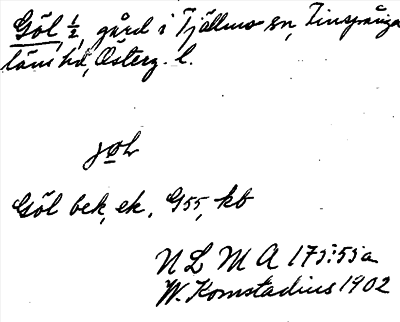 Göl, 1/2, gård i Tjällmo sn, Finspånga
läns hd, Österg. l.
jöL
Göl bek, ek. G55, kb
NLMA 175:55a
W. Komstadius 1902